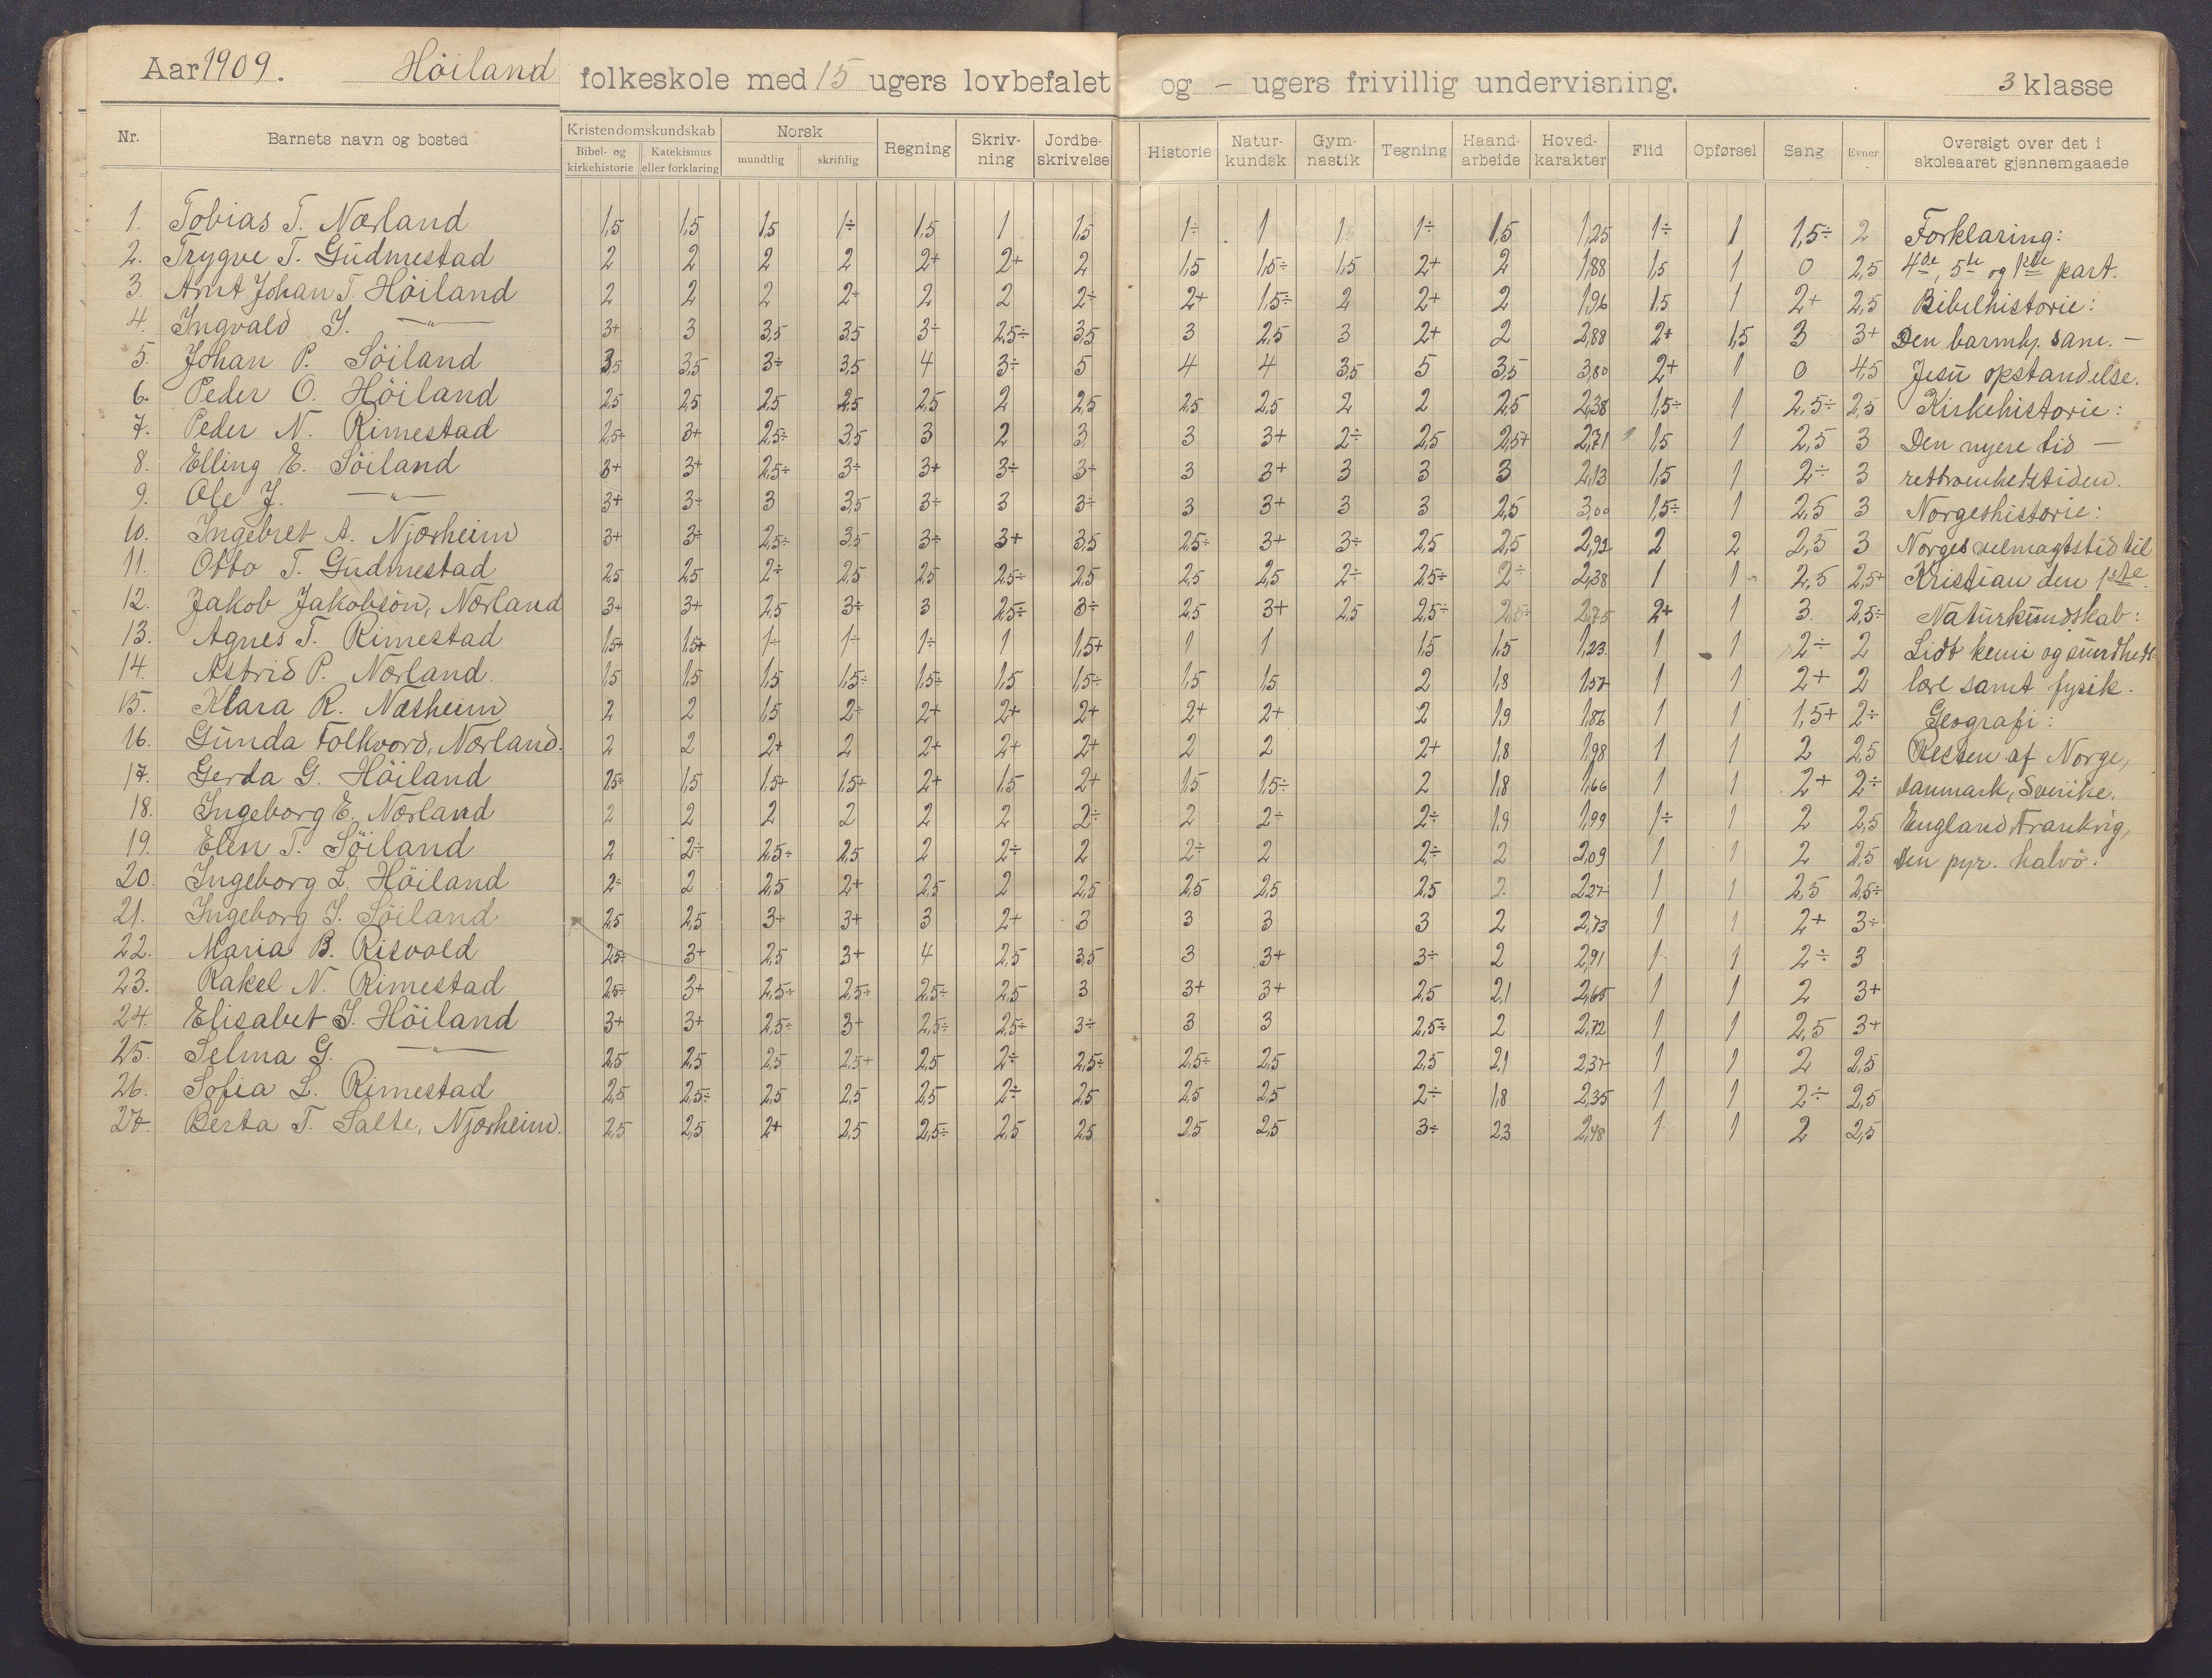 Aar 1909. Höiland folkeskole med 15 ugers lovbefalet og - ugers frivillig undervisning. 3 klasse
Nr. Barnets navn og bosted Kristendomskundskab Bibel- og kirkehistorie Katekismus eller forklaring Norsk mundtlig skriftlig Regning Skriv-ning Jordbe-skrivelse Historie Natur-kundsk Gym-nastik Tegning Haand-arbeide Hoved-karakter Flid Opførsel Sang Evner Oversigt over det i skoleaaret gjennemgaaede
1. Tobias T. Nærland 1,5 1,5 1,5 1÷ 1,5 1 1,5 1÷ 1 1 1÷ 1,5 1,25 1÷ 1 1,5÷ 2 Forklaring:
2. Trygve T. Gudmestad 2 2 2 2 2+ 2+ 2 1,5 1,5÷ 1,5 2+ 2 1,88 1,5 1 0 2,5 4de, 5te og 1ste part.
3. Arnt Johan T. Höiland 2 2 2 2÷ 2 2 2÷ 2+ 1,5÷ 2 2+ 2 1,96 1,5 1 2+ 2,5 Bibelhistorie:
4. Ingvald J. —"— 3+ 3 3,5 3,5 3÷ 2,5÷ 3,5 3 2,5 3 2+ 2 2,88 2+ 1,5 3 3+ Den barmhj. sam. —
5. Johan P. Söiland 3,5 3,5 3÷ 3,5 4 3÷ 5 4 4 3,5 5 3,5 3,80 2+ 1 0 4,5 Jesu opstandelse.
6. Peder O. Höiland 2,5 2,5 2,5 2,5 2,5 2 2,5 2,5 2,5 2 2 2,5 2,38 1,5÷ 1 2,5÷ 2,5 Kirkehistorie:
7. Peder N. Rimestad 2,5÷ 3+ 2,5÷ 3,5 3 2 3 3 3+ 2÷ 2,5 2,5+ 2,71 1,5 1 2,5 3 Den nyere tid —
8. Elling E. Söiland 3+ 3+ 2,5÷ 3÷ 3+ 3÷ 3÷ 3 3+ 3 3 3 2,13 1,5 1 2÷ 3 rettroenhedstiden.
9. Ole J. —"— 3+ 3÷ 3 3,5 3÷ 3 3÷ 3 3+ 3 3 2,5 3,00 1,5÷ 1 2,5 3 Norgeshistorie:
10. Ingebret A. Njærheim 3+ 3÷ 2,5÷ 3,5 3÷ 3+ 3,5 2,5÷ 3+ 3÷ 2,5 2,5 2,92 2 2 2,5 3 Norges velmagtstid til
11. Otto T. Gudmestad 2,5 2,5 2÷ 2,5 2,5 2,5÷ 2,5 2,5 2,5 2÷ 2,5÷ 2÷ 2,38 1 1 2,5 2,5+ Kristian den 1ste.
12. Jakob Jakobsön, Nærland 3+ 3+ 2,5 3÷ 3 2,5÷ 3÷ 2,5 3+ 2,5 2,5÷ 2,5÷ 2,75 2+ 1 3 2,5÷ Naturkundskab:
13. Agnes T. Rimestad 1,5+ 1,5+ 1÷ 1÷ 1÷ 1 1,5+ 1 1 1,5 1,5 1,23 1 1 2÷ 2 Lidt kemi og sundheds
14. Astrid P. Nærland. 1,5 1,5 1,5 1,5÷ 1,5÷ 1,5 1,5÷ 1,5 1,5 2 1,8 1,57 1 1 2+ 2 lære samt fysik.
15. Klara R. Næsheim 2 2 1,5 2÷ 2+ 2+ 2+ 2+ 2+ 2 1,9 1,86 1 1 1,5+ 2÷ Geografi:
16. Gunda Folkvord, Nærland. 2 2 2+ 2 2+ 2+ 2+ 2 2 2+ 1,8 1,98 1 1 2 2,5 Resten af Norge,
17. Gerda G. Höiland 1,5÷ 1,5 1,5+ 1,5+ 2+ 1,5 2+ 1,5 1,5÷ 2 1,8 1,66 1 1 2+ 2÷ Danmark, Sverike,
18. Ingeborg E. Nærland 2 2 2 2 2 2 2÷ 2 2÷ 2÷ 1,9 1,99 1÷ 1 2 2,5 England, Frankrig,
19. Elen T. Söiland 2 2÷ 2,5÷ 2,5 2 2÷ 2 2÷ 2 2÷ 2 2,09 1 1 2 2,5 Den pyr. halvö.
20. Ingeborg L. Höiland 2÷ 2 2,5 2+ 2,5 2 2,5 2,5 2,5 2,5 2 2,27 1 1 2,5 2,5÷
21. Ingeborg J. Söiland 2,5 2,5 3÷ 3+ 3 2+ 3 3 3 3 2 2,73 1 1 2+ 3÷
22. Maria B. Risvold 2,5÷ 3+ 2,5 3+ 4 2,5 3,5 3 3+ 3÷ 2 2,91 1 1 2÷ 3
23. Rakel N. Rimestad 2,5÷ 3+ 2,5÷ 2,5÷ 2,5÷ 2,5 3 3+ 3+ 2,5 2,1 2,65 1 1 2 3+
24. Elisabet J. Höiland 3+ 3+ 2,5÷ 3+ 2,5÷ 2,5÷ 3÷ 3 3 2,5÷ 2 2,72 1 1 2,5 3+
25. Selma G. —"— 2,5 2,5 2,5 2,5+ 2,5 2÷ 2,5÷ 2,5÷ 2,5 2,5 2,1 2,37 1 1 2 2,5
26. Sofia L. Rimestad 2,5 2,5÷ 2,5 2,5 2,5 2÷ 2,5 2,5 2,5 2÷ 1,8 2,35 1 1 2÷ 2,5
27. Berta T. Salte, Njærheim. 2,5 2,5 2+ 2,5 2,5÷ 2,5 2,5 2,5 2,5 3÷ 2,3 2,48 1 1 2 2,5